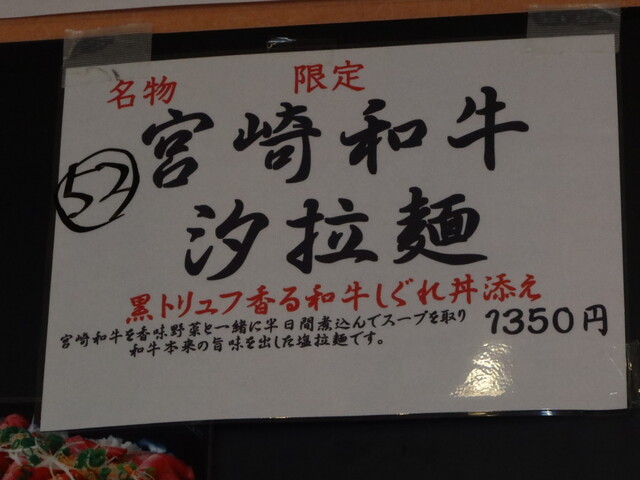 名物 限定
宮崎和牛
52
汐拉麺
黒トリュフ香る和牛しぐれ丼添え
宮崎和牛を香味野菜と一緒に半日間煮込んでスープを取り
和牛本来の旨味を出した塩拉麺です。
1350円